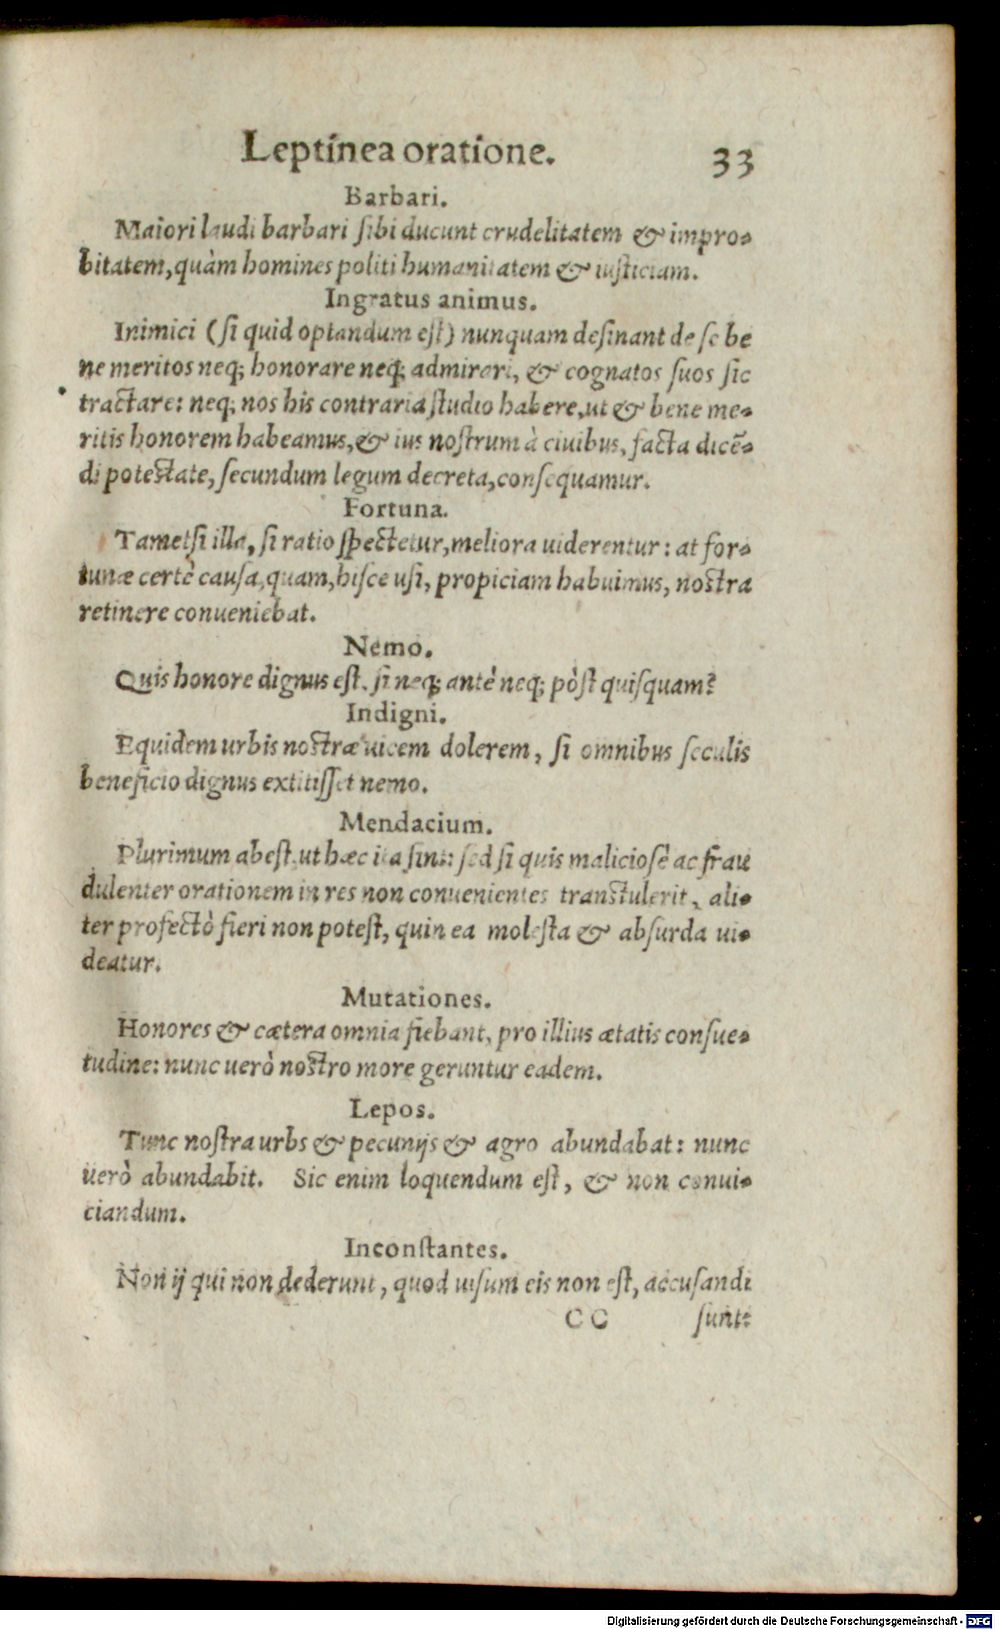 Leptinea oratione. 33
Barbari.
Maiori laudi barbari sibi ducunt crudelitatem & impro-
bitatem, quàm homines politi humanitatem & iusticiam.
Ingratus animus.
Inimici (si quid optandum est) nunquam desinant de se be
ne meritos neq; honorare neq; admirari, & cognatos suos sic
tractare: neq; nos his contraria studio habere, ut & bene me-
ritis honorem habeamus, & ius nostrum à ciuibus, facta dicē-
di potestate, secundum legum decreta, consequamur.
Fortuna.
Tametsi illa, si ratio spectetur, meliora uiderentur: at for-
tunæ certè causa, quam, hisce usi, propiciam habuimus, nostra
retinere conueniebat.
Nemo.
Quis honore dignus est, si neq; antè neq; pòst quisquam?
Indigni.
Equidem urbis nostræ uicem dolerem, si omnibus seculis
beneficio dignus extitisset nemo.
Mendacium.
Plurimum abest, ut hæc ita sint: sed si quis maliciosè ac frau
dulenter orationem in res non conuenientes transtulerit, ali-
ter profectò fieri non potest, quin ea molesta & absurda ui-
deatur.
Mutationes.
Honores & cætera omnia fiebant, pro illius ætatis consue-
tudine: nunc uerò nostro more geruntur eadem.
Lepos.
Tunc nostra urbs & pecunijs & agro abundabat: nunc
uerò abundabit. Sic enim loquendum est, & non conui-
ciandum.
Inconstantes.
Non ij qui non dederunt, quod uisum eis non est, accusandi
CC sunt:
Digitalisierung gefördert durch die Deutsche Forschungsgemeinschaft - DFG